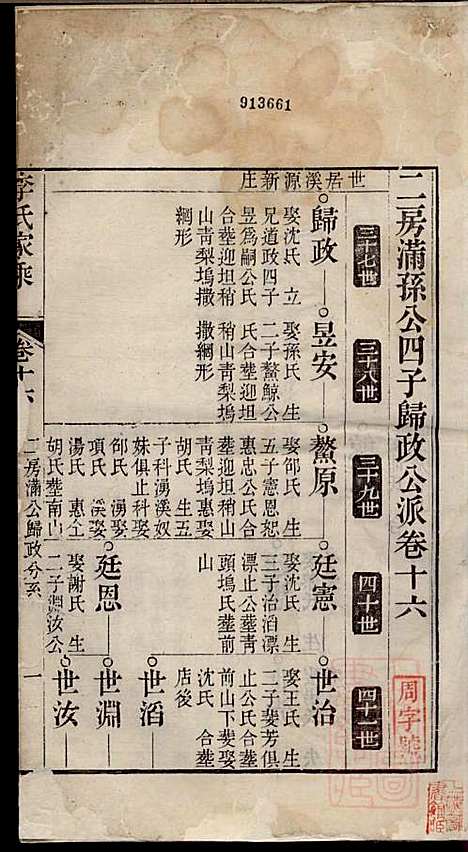 913661
二房滿孫公四子歸政公派卷十六
周字號
三十七世
三十八世
三十九世
四十世
四十一世
世居溪源新庄
歸政
娶沈氏 立
兄道政四子
昱爲嗣公氏
合塟迎坦稍
山青梨塢撒
網形
昱安
娶孫氏 生
二子鰲鯨公
氏合塟迎坦
稍山青梨塢
撒網形
鰲原
娶邰氏 生
五子憲恩恕
惠忠公氏合
塟迎坦稍山
青梨塢惠娶
胡氏 生五
子科湧溪奴
妹俱止科娶
邰氏 湧娶
項氏 溪娶
湯氏 惠仝
胡氏塟南山
廷憲
娶沈氏 生
三子治滔漂
漂止公塟青
頭塢氏塟前
山
世治
娶王氏 生
二子斐芳俱
止公氏合塟
前山下斐娶
沈氏 合塟
店後
世滔
廷恩
娶謝氏 生
二子淵汝公
世淵
世汝
二房滿公歸政分系
一
李氏家乘
卷十六